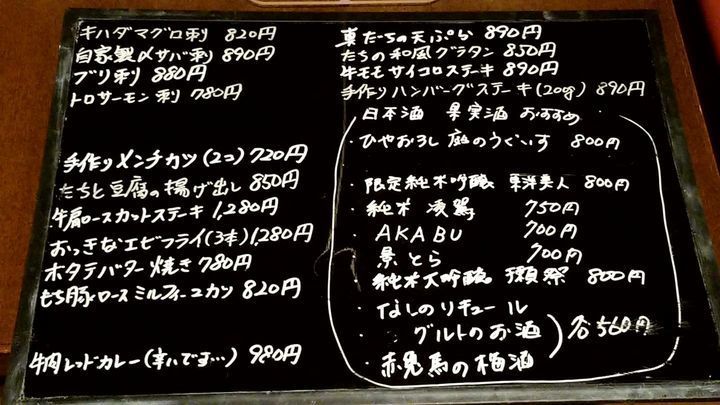 キハダマグロ刺 820円
自家製〆サバ刺 890円
ブリ刺 880円
トロサーモン刺 780円
手作りメンチカツ(2コ) 720円
たちと豆腐の揚げ出し 850円
牛肩ロースカットステーキ 1,280円
おっきなエビフライ(3本) 1,280円
ホタテバター焼き 780円
もち豚ロースミルフィーユカツ 820円
牛肉レッドカレー(辛いです…) 980円
真だちの天ぷら 890円
たちの和風グラタン 850円
牛モモサイコロステーキ 890円
手作りハンバーグステーキ(200g) 890円
日本酒 果実酒 おすすめ
・ひやおろし 庭のうぐいす 800円
・限定純米吟醸 東洋美人 800円
・純米 750円
・AKABU 700円
・景とら 700円
純米大吟醸 獺祭 800円
・なしのリキュール
・グルトのお酒
・赤兎馬の梅酒
各560円